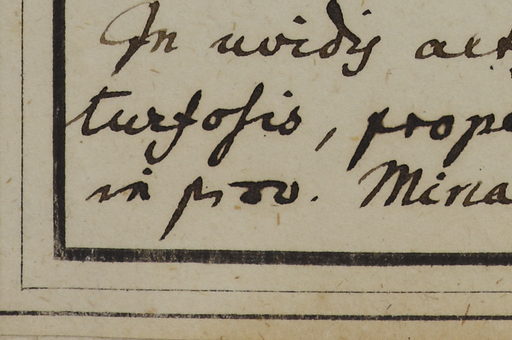 In uvidis aet
turfosis, prope
in prov. Mina